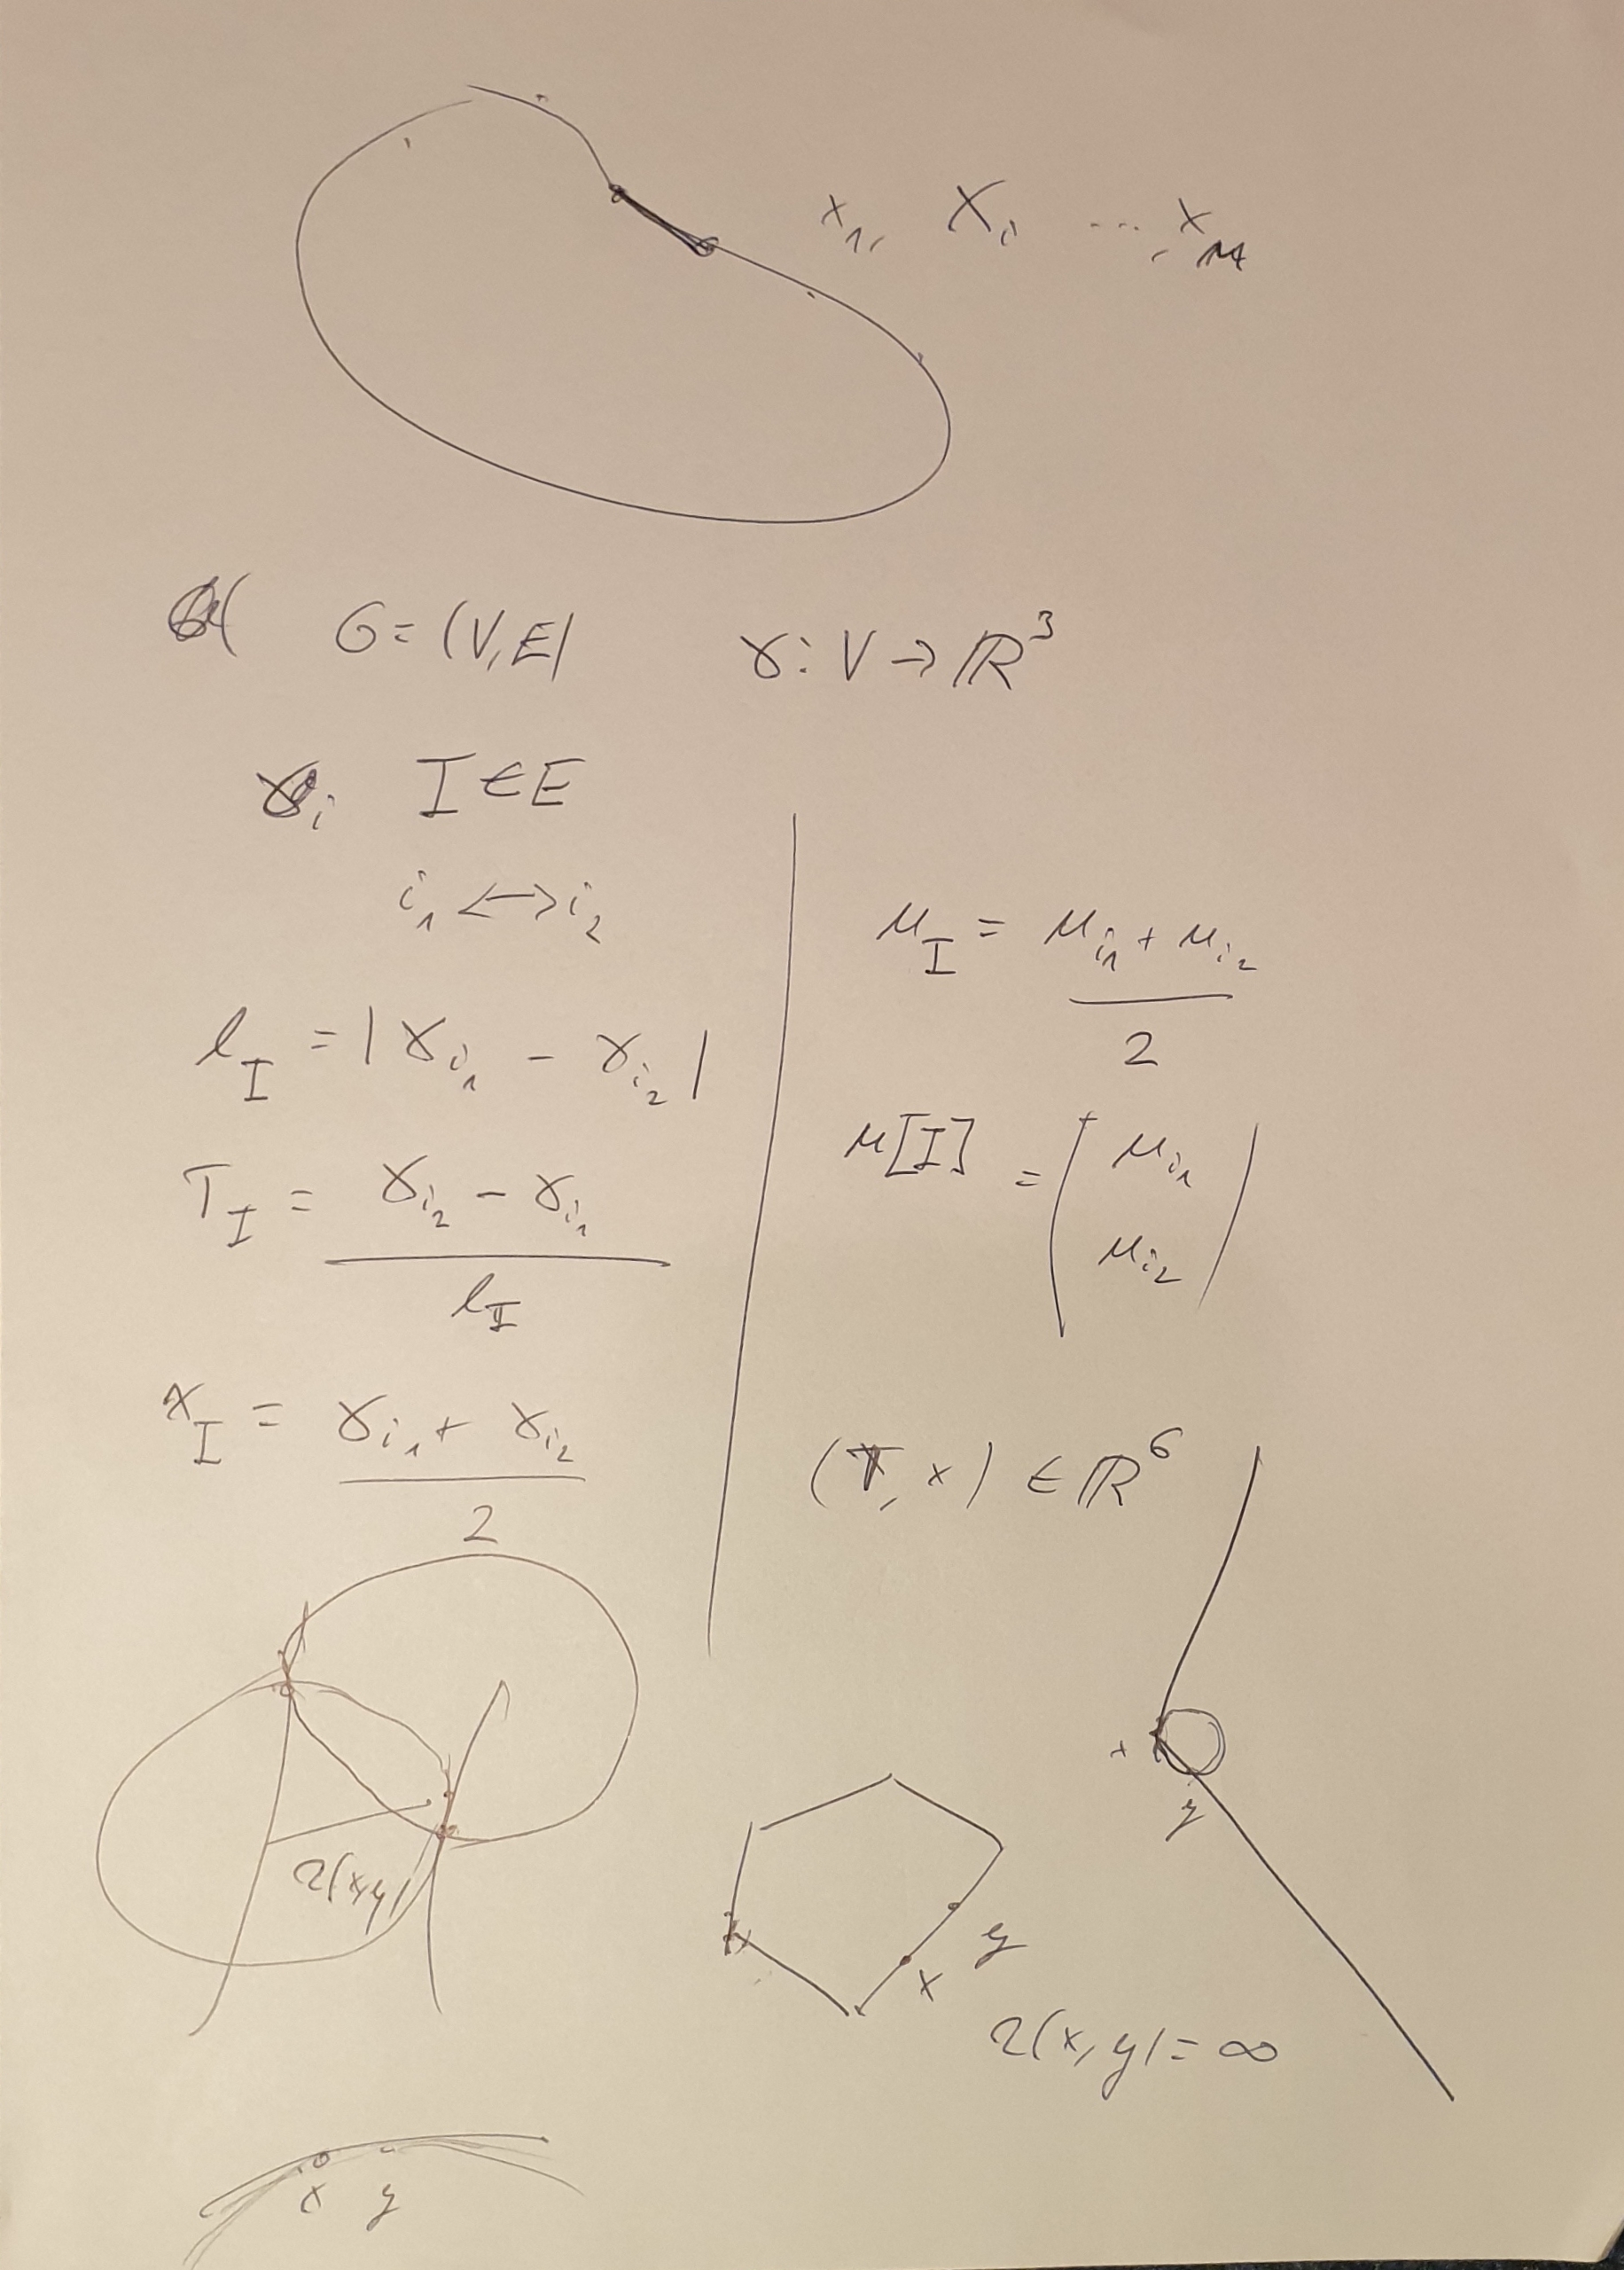 x₁, X_i ..., x_M
G = (V, E) γ: V → ℝ³
γ_i I ∈ E
i₁ ↔ i₂
l_I = |γ_{i₁} - γ_{i₂}|
T_I = (γ_{i₂} - γ_{i₁}) / l_I
x_I = (γ_{i₁} + γ_{i₂}) / 2
μ_I = (μ_{i₁} + μ_{i₂}) / 2
μ[I] = (μ_{i₁} μ_{i₂})
(T, x) ∈ ℝ⁶
x
y
r(x,y)
y
x
r(x,y) = ∞
x y